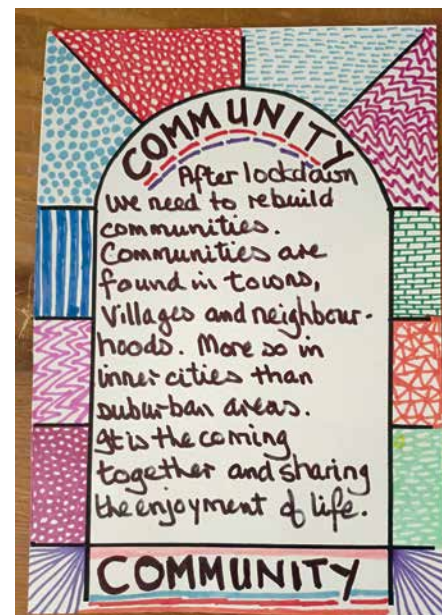 COMMUNITY
After lockdown
we need to rebuild
communities.
Communities are
found in towns,
Villages and neighbour-
hoods. More so in
inner cities than
suburban areas.
It is the coming
together and sharing
the enjoyment of life.
COMMUNITY